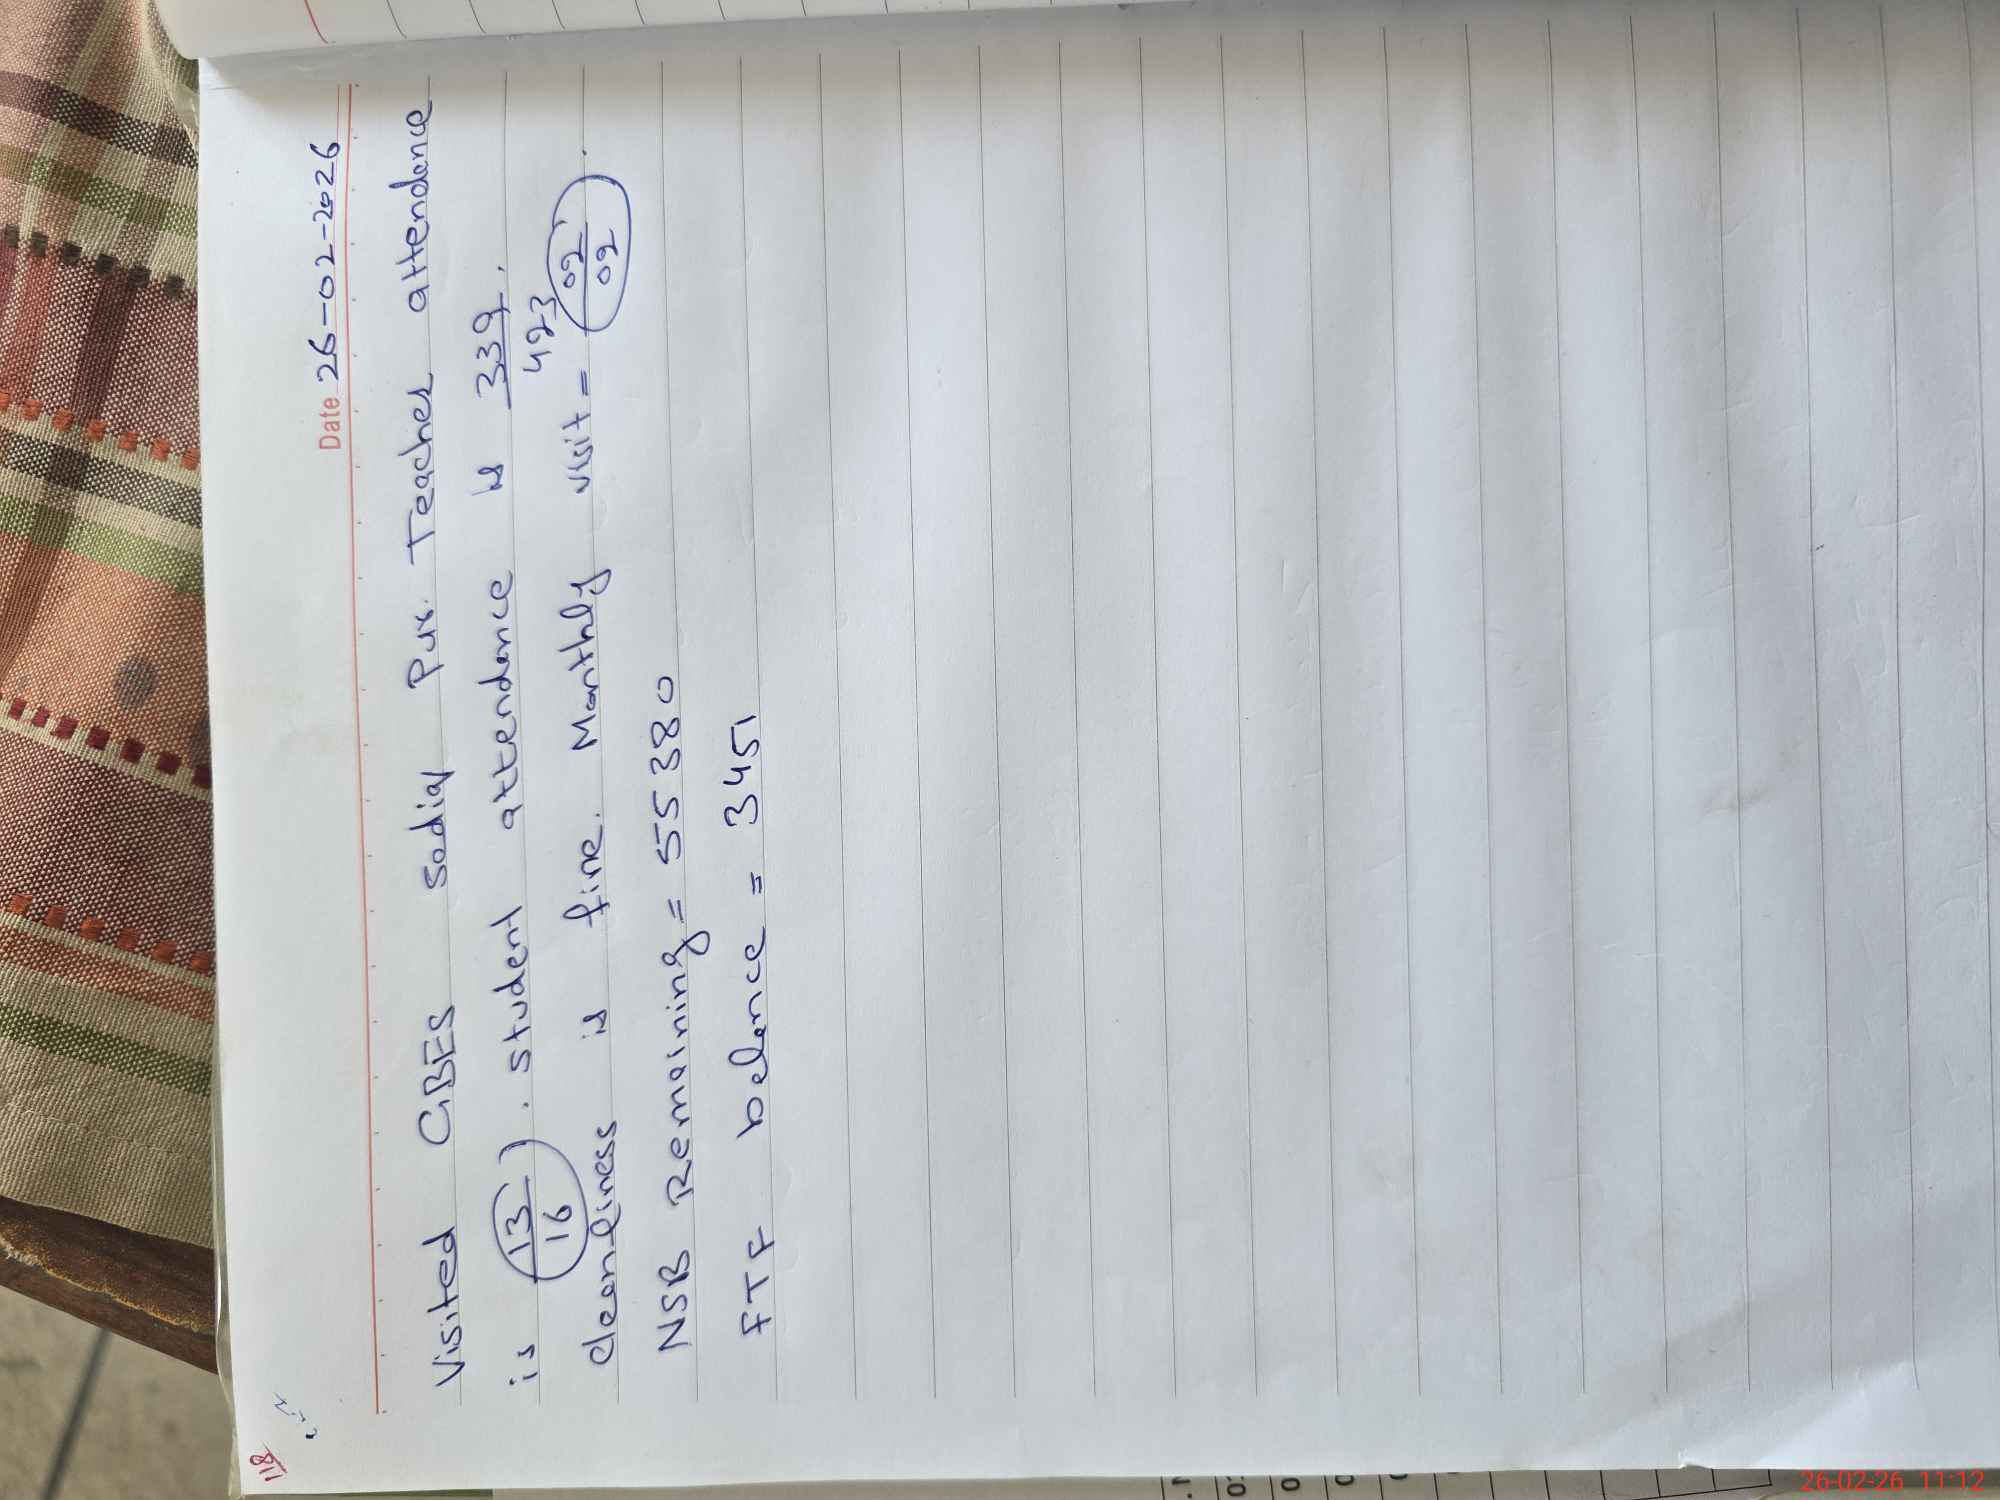 118
Date 26-02-2026
Visited GBES Sadiq Pur. Teacher attendence
is 13/16. student attendence is 339/423.
cleanliness is fine. Monthly visit = 02/02.
NSB Remaining = 55380
FTF balence = 3451
26-02-26 11:12